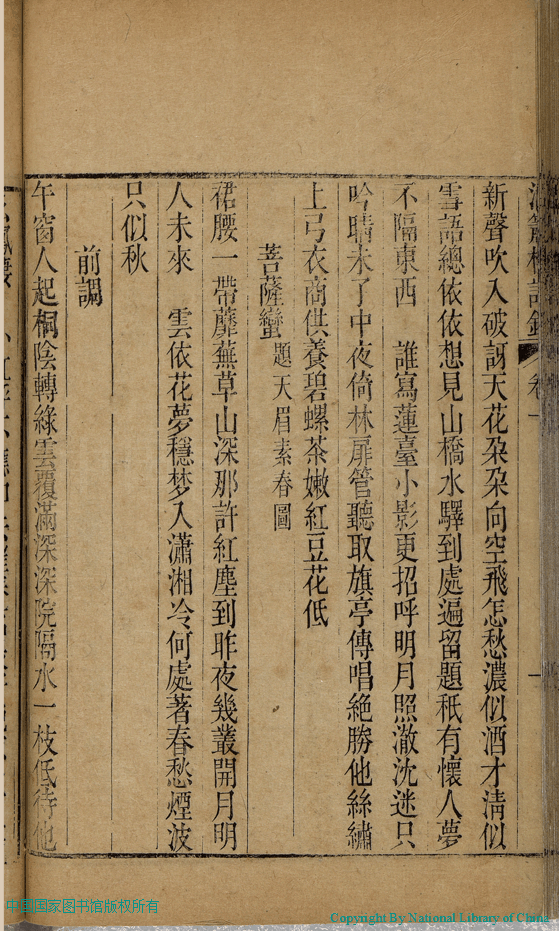 新聲吹入破訝天花朶朶向空飛怎愁濃似酒才淸似
雪語總依依想見山橋水驛到處遍留題秖有懷人夢
不隔東西　誰寫蓮臺小影更招呼明月照澈沈迷只
吟晴未了中夜倚林扉管聽取旗亭傳唱絶勝他絲繡
上弓衣商供養碧螺茶嫩紅豆花低
菩薩蠻題天眉素春圖
裙腰一帶蘼蕪草山深那許紅塵到昨夜幾叢開月明
人未來　雲依花夢穩梦入瀟湘冷何處著春愁煙波
只似秋
前調
午窗人起桐陰轉綠雲覆滿深深院隔水一枝低待他
中国国家图书馆版权所有
Copyright By National Library of China